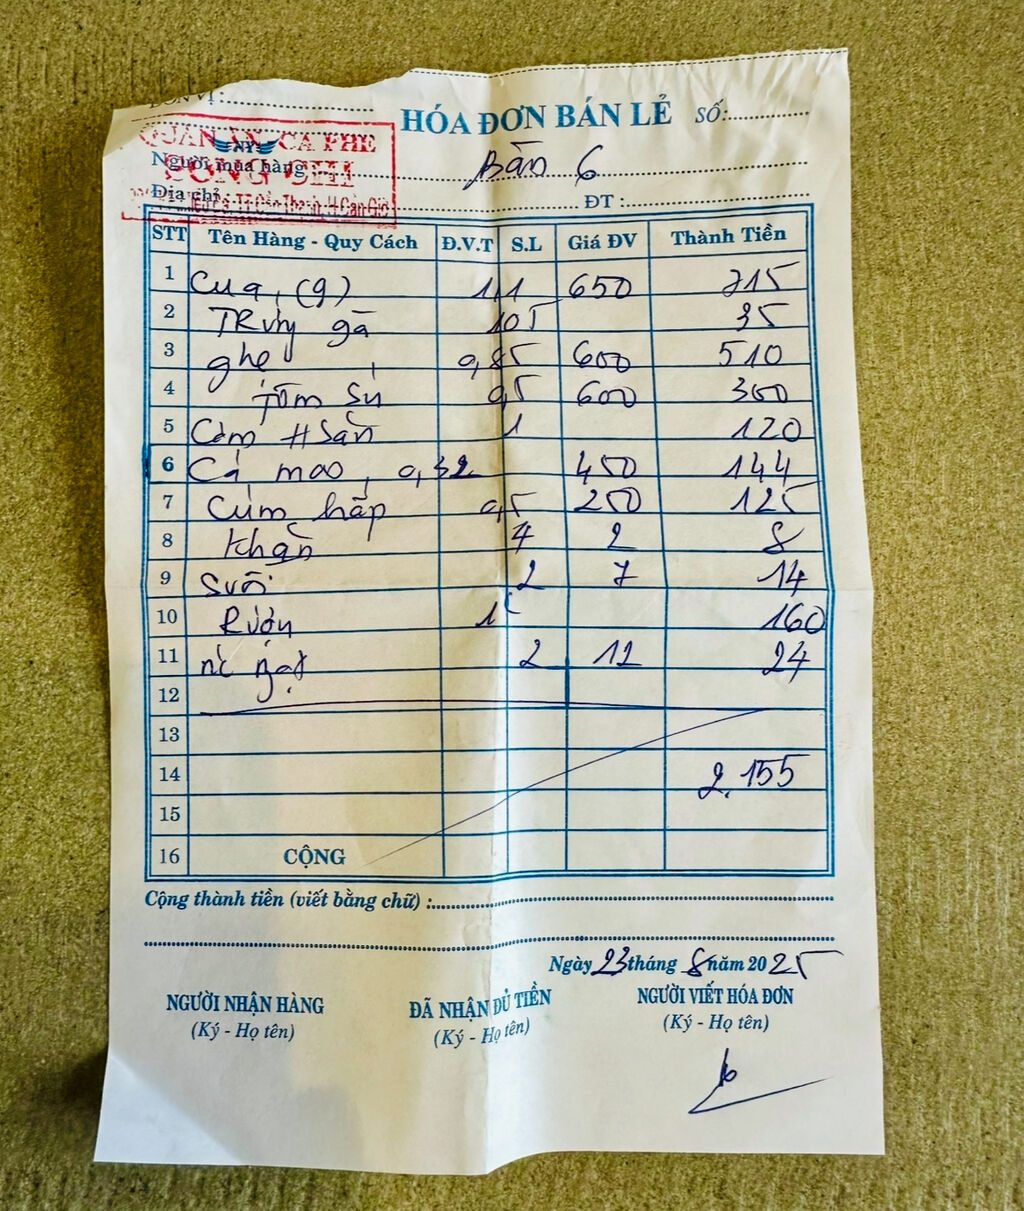 ĐƠN VỊ:
HÓA ĐƠN BÁN LẺ SỐ:
QUÁN ĂN CÀ PHÊ
Người mua hàng Bàn 6
Địa chỉ ĐT :
STT Tên Hàng - Quy Cách Đ.V.T S.L Giá ĐV Thành Tiền
1 Cua (g) 1,1 650 715
2 Trứng gà 35
3 ghẹ 0,85 600 510
4 Tôm Sú 0,5 600 300
5 Cơm H Sản 1 120
6 Cá mao 0,32 450 144
7 Cúm hấp 0,5 250 125
8 Khăn 4 2 8
9 Suối 2 7 14
10 Rượu 1 160
11 nc ngọt 2 12 24
12
13
14 2.155
15
16 CỘNG
Cộng thành tiền (viết bằng chữ) :
Ngày 23 tháng 8 năm 2025
NGƯỜI NHẬN HÀNG ĐÃ NHẬN ĐỦ TIỀN NGƯỜI VIẾT HÓA ĐƠN
(Ký - Họ tên) (Ký - Họ tên) (Ký - Họ tên)